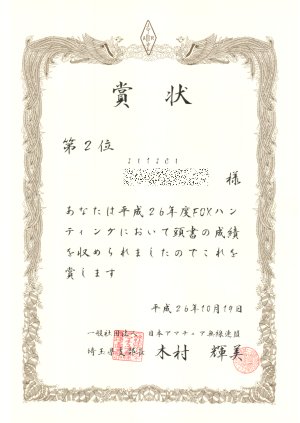 賞状
第2位
様
あなたは平成26年度FOXハン
ティングにおいて頭書の成績
を収められましたのでこれを
賞します
平成26年10月19日
一般社団法人 日本アマチュア無線連盟
埼玉県支部長 木村 輝美